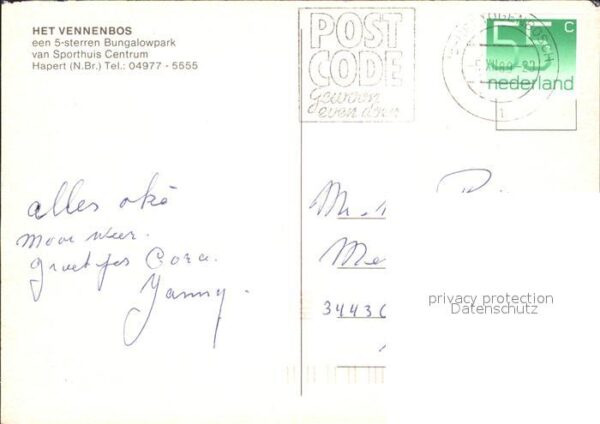 HET VENNENBOS
een 5-sterren Bungalowpark
van Sporthuis Centrum
Hapert (N.Br.) Tel.: 04977 - 5555
POST
CODE
Gewoon
even doen
55 C
nederland
alles oké
mooi weer.
groetjes Cora.
Yanny.
3443
privacy protection
Datenschutz